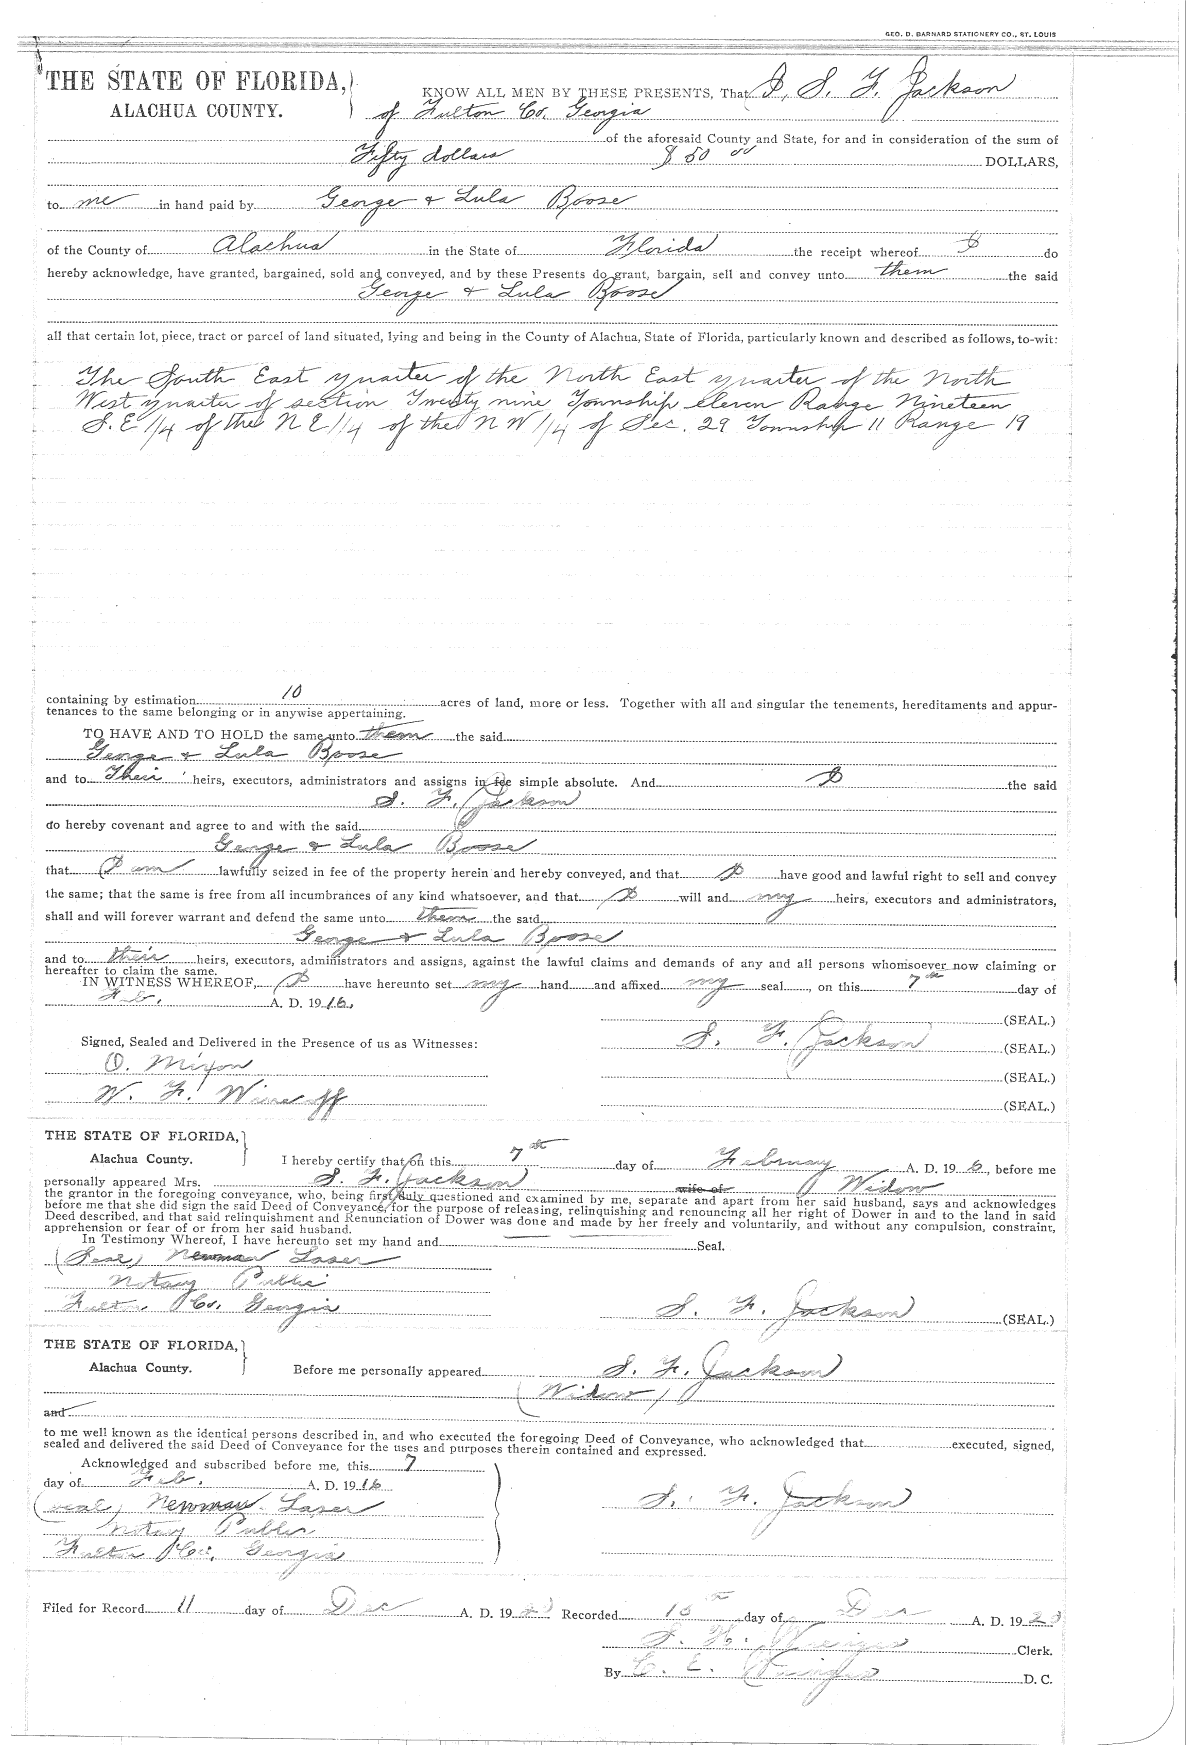 GEO. D. BARNARD STATIONERY CO., ST. LOUIS
THE STATE OF FLORIDA,
ALACHUA COUNTY.
KNOW ALL MEN BY THESE PRESENTS, That I, S. F. Jackson
of Fulton Co. Georgia
of the aforesaid County and State, for and in consideration of the sum of
Fifty dollars $ 50 00 DOLLARS,
to me in hand paid by George & Lula Boose
of the County of Alachua in the State of Florida the receipt whereof I do
hereby acknowledge, have granted, bargained, sold and conveyed, and by these Presents do grant, bargain, sell and convey unto them the said
George & Lula Boose
all that certain lot, piece, tract or parcel of land situated, lying and being in the County of Alachua, State of Florida, particularly known and described as follows, to-wit:
The South East quarter of the North East quarter of the North
West quarter of section Twenty nine Township eleven Range Nineteen
S.E 1/4 of the N E 1/4 of the N W 1/4 of Sec. 29 Township 11 Range 19
containing by estimation 10 acres of land, more or less. Together with all and singular the tenements, hereditaments and appur-
tenances to the same belonging or in anywise appertaining.
TO HAVE AND TO HOLD the same unto them the said
George & Lula Boose
and to Their heirs, executors, administrators and assigns in fee simple absolute. And I the said
S. F. Jackson
do hereby covenant and agree to and with the said
George & Lula Boose
that I am lawfully seized in fee of the property herein and hereby conveyed, and that I have good and lawful right to sell and convey
the same; that the same is free from all incumbrances of any kind whatsoever, and that I will and my heirs, executors and administrators,
shall and will forever warrant and defend the same unto them the said
George & Lula Boose
and to their heirs, executors, administrators and assigns, against the lawful claims and demands of any and all persons whomsoever now claiming or
hereafter to claim the same.
IN WITNESS WHEREOF, I have hereunto set my hand and affixed my seal, on this 7th day of
Feb. A. D. 1916.
(SEAL.)
S. F. Jackson (SEAL.)
Signed, Sealed and Delivered in the Presence of us as Witnesses:
O. Mixon (SEAL.)
W. F. Winecoff (SEAL.)
THE STATE OF FLORIDA,
Alachua County.
I hereby certify that on this 7th day of February A. D. 19 6, before me
personally appeared Mrs. S. F. Jackson wife of Widow
the grantor in the foregoing conveyance, who, being first duly questioned and examined by me, separate and apart from her said husband, says and acknowledges
before me that she did sign the said Deed of Conveyance, for the purpose of releasing, relinquishing and renouncing all her right of Dower in and to the land in said
Deed described, and that said relinquishment and Renunciation of Dower was done and made by her freely and voluntarily, and without any compulsion, constraint,
apprehension or fear of or from her said husband.
In Testimony Whereof, I have hereunto set my hand and Seal.
(Seal) Newman Laser
Notary Public
Fulton Co. Georgia
S. F. Jackson (SEAL.)
THE STATE OF FLORIDA,
Alachua County.
Before me personally appeared S. F. Jackson
(Widow)
and
to me well known as the identical persons described in, and who executed the foregoing Deed of Conveyance, who acknowledged that executed, signed,
sealed and delivered the said Deed of Conveyance for the uses and purposes therein contained and expressed.
Acknowledged and subscribed before me, this 7
day of Feb. A. D. 1916
(seal) Newman Laser
Notary Public
Fulton Co. Georgia
S. F. Jackson
Filed for Record 11 day of Dec A. D. 19 Recorded day of Dec A. D. 19
S. H. Clerk.
By C. E. D. C.